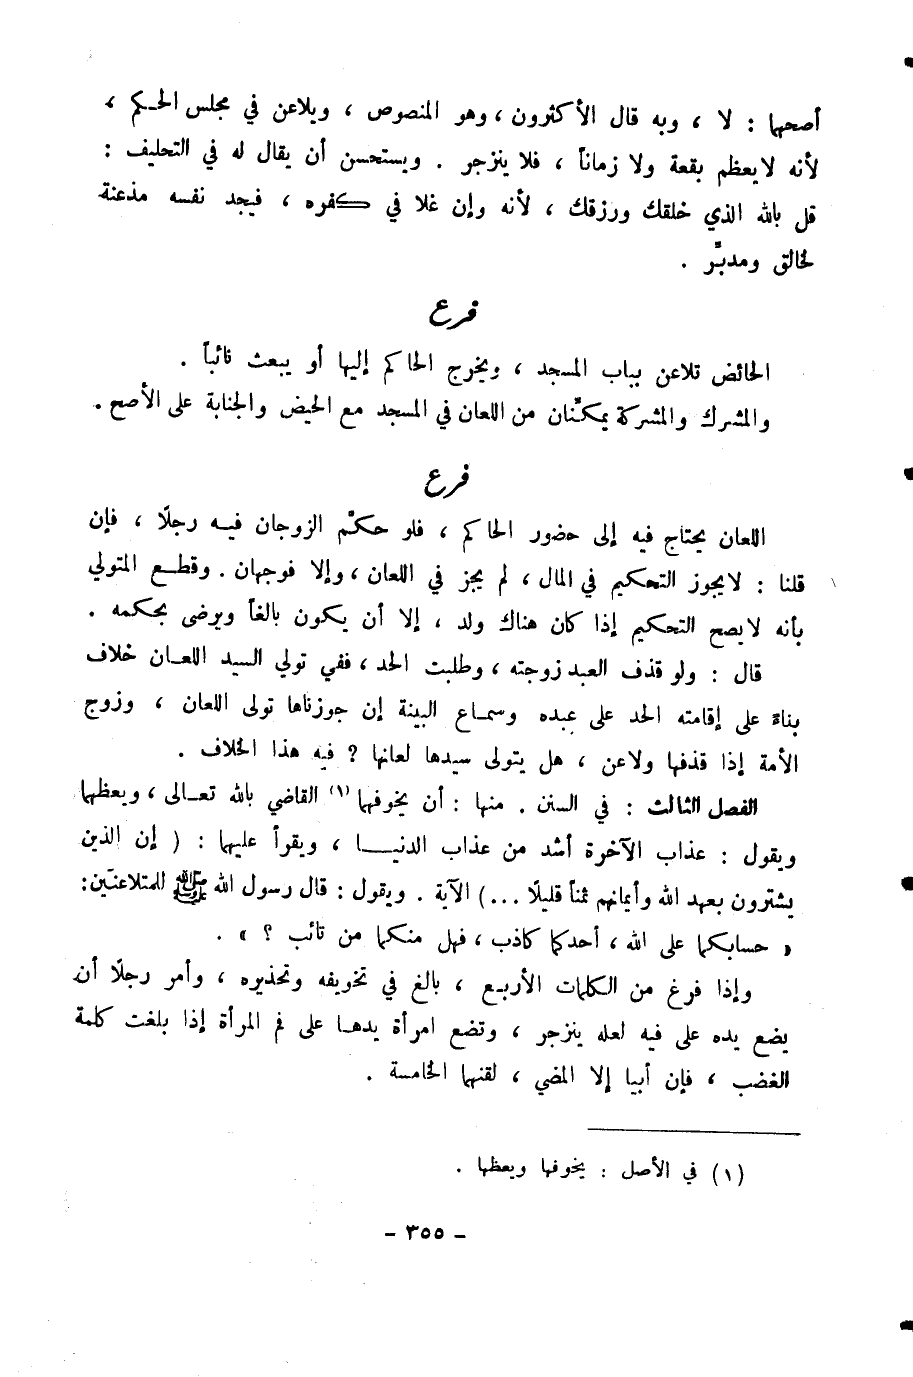 أصحها : لا ، وبه قال الأكثرون ، وهو المنصوص ، ويلاعن في مجلس الحكم ،
لأنه لايعظم بقعة ولا زماناً ، فلا ينزجر . ويستحسن أن يقال له في التحليف :
قل بالله الذي خلقك ورزقك ، لأنه وإن غلا في كفره ، فيجد نفسه مذعنة
لخالق ومدبِّر .
فرع
الحائض تلاعن بباب المسجد ، ويخرج الحاكم إليها أو يبعث نائباً .
والمشرك والمشركة يمكَّنان من اللعان في المسجد مع الحيض والجنابة على الأصح .
فرع
اللعان يحتاج فيه إلى حضور الحاكم ، فلو حكَّم الزوجان فيه رجلًا ، فإن
قلنا : لايجوز التحكيم في المال ، لم يجز في اللعان ، وإلا فوجهان . وقطع المتولي
بأنه لايصح التحكيم إذا كان هناك ولد ، إلا أن يكون بالغاً ويرضى بحكمه .
قال : ولو قذف العبد زوجته ، وطلبت الحد ، ففي تولي السيد اللعان خلاف
بناءً على إقامته الحد على عبده وسماع البينة إن جوزناها تولى اللعان ، وزوج
الأمة إذا قذفها ولاعن ، هل يتولى سيدها لعانها ؟ فيه هذا الخلاف .
الفصل الثالث : في السنن . منها : أن يخوفهما (١) القاضي بالله تعالى ، ويعظهما
ويقول : عذاب الآخرة أشد من عذاب الدنيا ، ويقرأ عليهما : ( إن الذين
يشترون بعهد الله وأيمانهم ثمناً قليلًا ... ) الآية . ويقول : قال رسول الله ﷺ للمتلاعنين :
« حسابكما على الله ، أحدكما كاذب ، فهل منكما من تائب ؟ » .
وإذا فرغ من الكلمات الأربع ، بالغ في تخويفه وتحذيره ، وأمر رجلًا أن
يضع يده على فيه لعله ينزجر ، وتضع امرأة يدها على فم المرأة إذا بلغت كلمة
الغضب ، فإن أبيا إلا المضي ، لقنهما الخامسة .
(١) في الأصل : يخوفها ويعظها .
- ٣٥٥ -